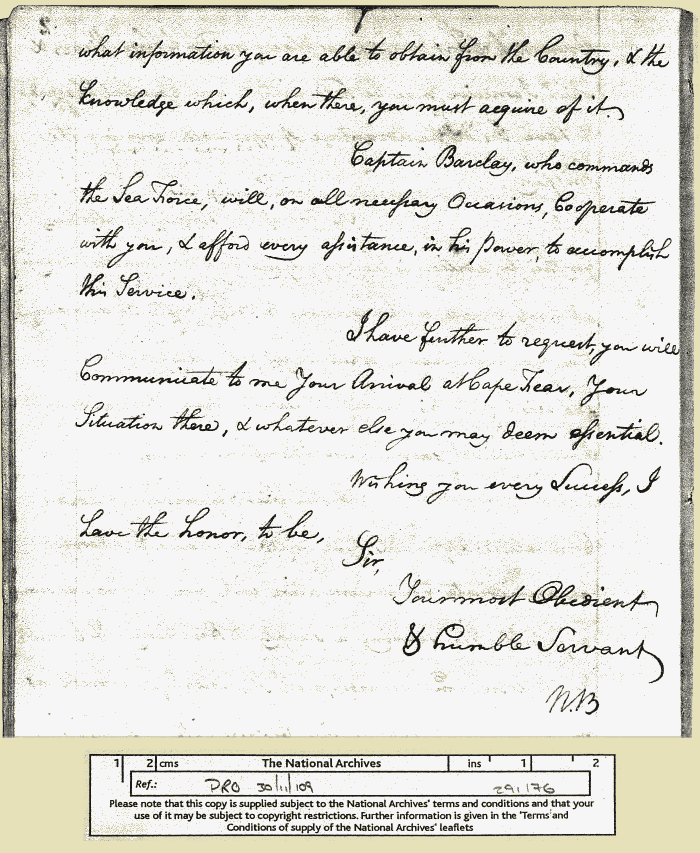 what information you are able to obtain from the Country, & the
knowledge which, when there, you must acquire of it.
Captain Barclay, who commands
the Sea Force, will, on all necessary Occasions, Cooperate
with you, & afford every assistance, in his Power, to accomplish
this Service.
I have further to request, you will
Communicate to me Your Arrival at Cape Fear, Your
Situation there, & whatever else you may deem essential.
Wishing you every Success, I
have the honor, to be,
Sir,
Your most Obedient
& humble Servant
N.B
1 2 cms The National Archives ins 1 2
Ref.: PRO 30/11/109 291/76
Please note that this copy is supplied subject to the National Archives' terms and conditions and that your
use of it may be subject to copyright restrictions. Further information is given in the 'Terms and
Conditions of supply of the National Archives' leaflets